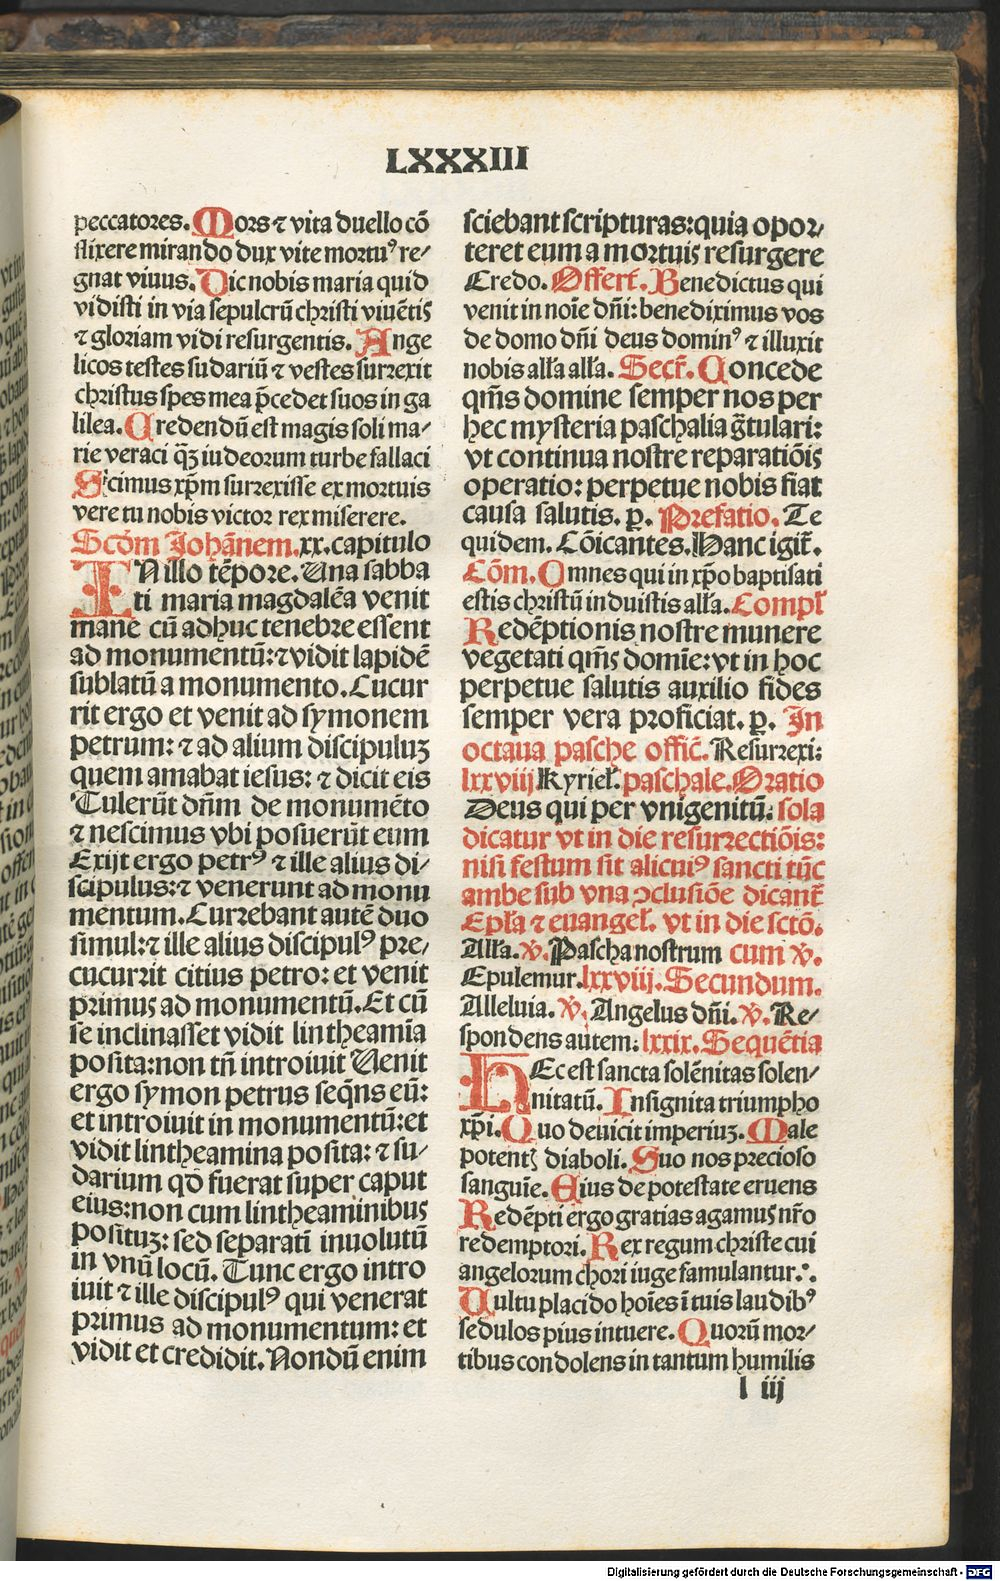 LXXXIII
peccatores. Mors ⁊ vita duello cō
flixere mirando dux vite mortuꝰ re⸗
gnat viuus. Dic nobis maria quid
vidisti in via sepulcrū christi viuētis
⁊ gloriam vidi resurgentis. Ange
licos testes sudariū ⁊ vestes surrexit
christus spes mea p̄cedet suos in ga
lilea. Credendū est magis soli ma⸗
rie veraci qȝ̄ iudeorum turbe fallaci
Scimus xp̄m surrexisse ex mortuis
vere tu nobis victor rex miserere.
Scd̄m Johānem. xx. capitulo
IN illo tēpore. Una sabba
ti maria magdalēa venit
mane cū adhuc tenebre essent
ad monumentū: ⁊ vidit lapidē
sublatū a monumento. Cucur
rit ergo et venit ad symonem
petrum: ⁊ ad alium discipuluȝ
quem amabat iesus: ⁊ dicit eis
Tulerūt dn̄m de monumēto
⁊ nescimus vbi posuerūt eum
Exijt ergo petrꝰ ⁊ ille alius di⸗
scipulus: ⁊ venerunt ad monu
mentum. Currebant autē duo
simul: ⁊ ille alius discipulꝰ pre⸗
cucurrit citius petro: et venit
primus ad monumentū. Et cū
se inclinasset vidit lintheamīa
posita: non tn̄ introiuit Uenit
ergo symon petrus seq̄ns eū:
et introiuit in monumentū: et
vidit lintheamina posita: ⁊ su⸗
darium qd̄ fuerat super caput
eius: non cum lintheaminibus
posituȝ: sed separatī inuolutū
in vnū locū. Tunc ergo intro
iuit ⁊ ille discipulꝰ qui venerat
primus ad monumentum: et
vidit et credidit. Nondū enim
sciebant scripturas: quia opor⸗
teret eum a mortuis resurgere
Credo. Offert̄. Benedictus qui
venit in noīe dn̄i: benediximus vos
de domo dn̄i deus dominꝰ ⁊ illuxit
nobis all̄a all̄a. Secr̄. Concede
qm̄s domine semper nos per
hec mysteria paschalia gr̄tulari:
vt continua nostre reparatiōis
operatio: perpetue nobis fiat
causa salutis. p̱. Prefatio. Te
quidem. Cōicantes. Hanc igit̄.
Cōm. Omnes qui in xp̄o baptisati
estis christū induistis all̄a. Compl̄
Redēptionis nostre munere
vegetati qm̄s domīe: vt in hoc
perpetue salutis auxilio fides
semper vera proficiat. p̱. In
octaua pasche offic̄. Resurrexi:
lxxviij Kyriel̄. paschale. Oratio
Deus qui per vnigenitū: sola
dicatur vt in die resurrectiōis:
nisi festum sit alicuiꝰ sancti tūc
ambe sub vna ꝯclusiōe dicant̄
Epl̄a ⁊ euangel̄. vt in die sctō.
All̄a. ℣. Pascha nostrum cum ℣.
Epulemur. lxxviij. Secundum.
Alleluia. ℣. Angelus dn̄i. ℣. Re⸗
spondens autem: lxxix. Sequētia
HEc est sancta solēnitas solen⸗
nitatū. Insignita triumpho
xp̄i. Quo deuicit imperiuȝ. Male
potentꝭ diaboli. Suo nos precioso
sanguīe. Eius de potestate eruens
Redēpti ergo gratias agamus nr̄o
redemptori. Rex regum christe cui
angelorum chori iuge famulantur.
Uultu placido hoīes ī tuis laudibꝰ
sedulos pius intuere. Quorū mor⸗
tibus condolens in tantum humilis
l iij
Digitalisierung gefördert durch die Deutsche Forschungsgemeinschaft - DFG